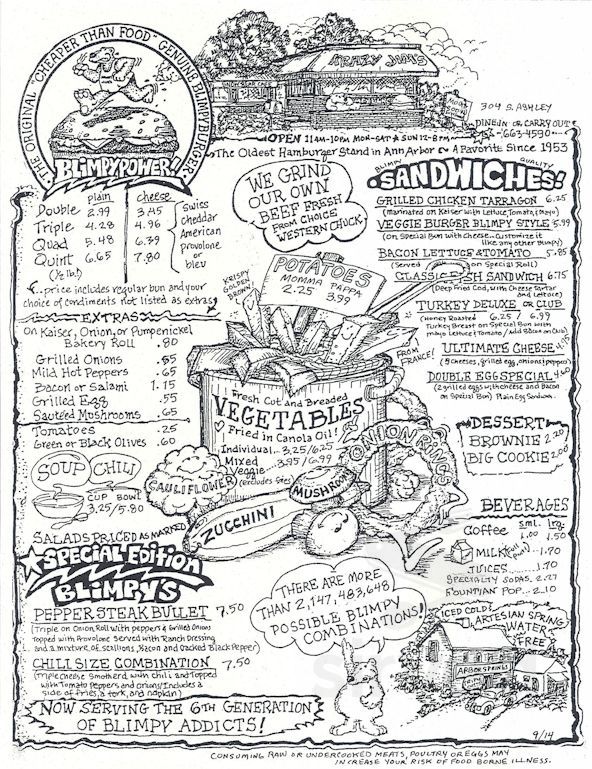 THE ORIGINAL "CHEAPER THAN FOOD" GENUINE BLIMPYBURGER
BLIMPYPOWER!
KRAZY JIM'S
304 S. ASHLEY
DINE IN OR CARRY OUT
663-4590
OPEN 11AM-10PM MON-SAT & SUN 12-8PM
The Oldest Hamburger Stand in Ann Arbor
A Favorite Since 1953
plain cheese
Double 2.99 3.45
Triple 4.28 4.96
Quad 5.48 6.39
Quint 6.65 7.80
(½ lb.)
Swiss
cheddar
American
provolone
or
bleu
price includes regular bun and your
choice of condiments not listed as extras
EXTRAS
On Kaiser, Onion, or Pumpenickel
Bakery Roll .80
Grilled Onions .55
Mild Hot Peppers .65
Bacon or Salami 1.15
Grilled Egg .55
Sauteéd Mushrooms .65
Tomatoes .25
Green or Black Olives .60
SOUP CHILI
CUP BOWL
3.25/5.80
SALADS PRICED AS MARKED
WE GRIND
OUR OWN
BEEF FRESH
FROM CHOICE
WESTERN CHUCK
KRISPY
GOLDEN
BROWN
POTATOES
MOMMA PAPPA
2.25 3.99
FROM
FRANCE!
Fresh Cut and Breaded
VEGETABLES
Fried in Canola Oil!
Individual.. 3.25/6.25
Mixed
Veggie 3.95/6.99
(excludes fries)
CAULIFLOWER
MUSHROOM
ZUCCHINI
ONION RINGS
BLIMPY QUALITY
SANDWICHES!
GRILLED CHICKEN TARRAGON 6.25
(Marinated on Kaiser with Lettuce, Tomato, Mayo)
VEGGIE BURGER BLIMPY STYLE 5.99
(On Special Bun with Cheese.. Customize it
like any other Blimpy)
BACON LETTUCE & TOMATO 5.85
(Served on Special Roll)
CLASSIC FISH SANDWICH 6.75
(Deep Fried Cod, with Cheese Tartar
and Lettuce)
TURKEY DELUXE OR CLUB
(Honey Roasted 6.25 / 6.99
Turkey Breast on Special Bun with
mayo Lettuce & Tomato / Add Bacon on Club)
ULTIMATE CHEESE
(3 cheeses, grilled egg, onions & peppers)
DOUBLE EGG SPECIAL 4.60
(2 grilled eggs with cheese and Bacon
on Special Bun) Plain Egg Sandwich
DESSERT
BROWNIE 2.20
BIG COOKIE 2.00
BEVERAGES
sml. lrg.
Coffee 1.00 1.50
MILK 1.70
JUICES 1.70
SPECIALTY SODAS 2.27
FOUNTIAN POP 2.10
ICED COLD!
ARTESIAN SPRING
WATER
FREE
ARBOR SPRINGS
SPECIAL EDITION
BLIMPY'S
PEPPER STEAK BULLET 7.50
(Triple on Onion Roll with peppers & Grilled Onions
Topped with Provolone Served with Ranch Dressing
and a mixture of scallions, Bacon and Cracked Black Pepper)
CHILI SIZE COMBINATION 7.50
(Triple Cheese Smothered with Chili and Topped
with Tomato Peppers and onions/Includes a
side of fries, a fork, and napkin)
NOW SERVING THE 6TH GENERATION
OF BLIMPY ADDICTS!
THERE ARE MORE
THAN 2,147,483,648
POSSIBLE BLIMPY
COMBINATIONS!
9/14
CONSUMING RAW OR UNDERCOOKED MEATS, POULTRY OR EGGS MAY
INCREASE YOUR RISK OF FOOD BORNE ILLNESS.